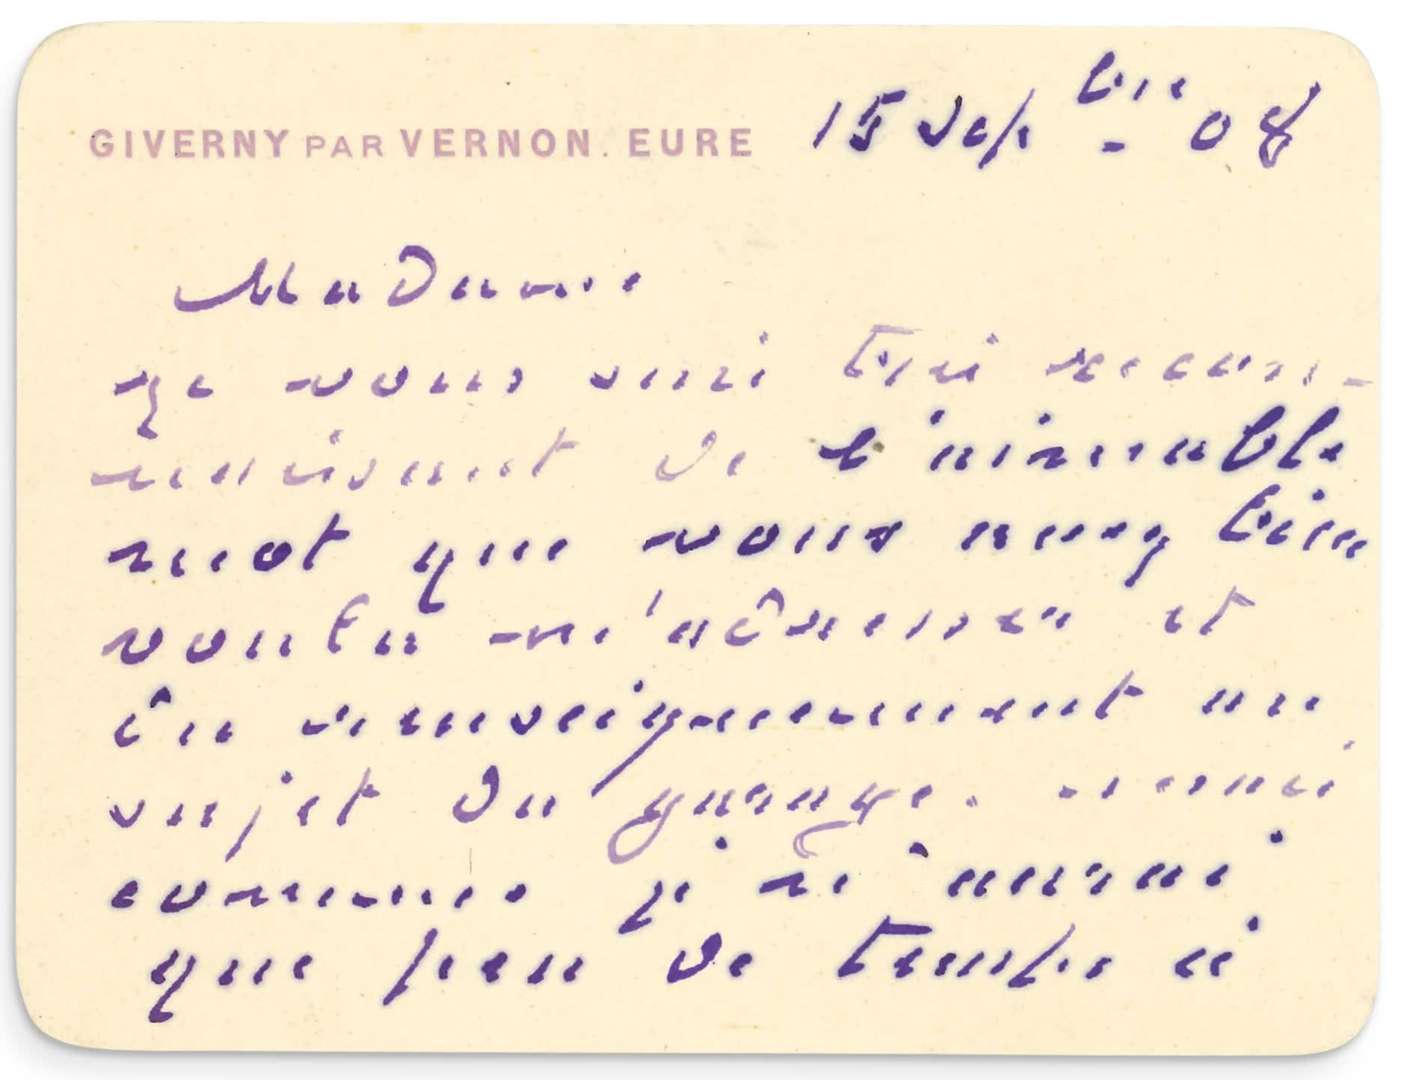 GIVERNY PAR VERNON. EURE 15 Sept bre 08
Madame
je vous suis très recon-
naissant de l'aimable
mot que vous avez bien
voulu m'adresser et
du renseignement au
sujet du garage. mais
comme je n'aurai
que peu de temps à